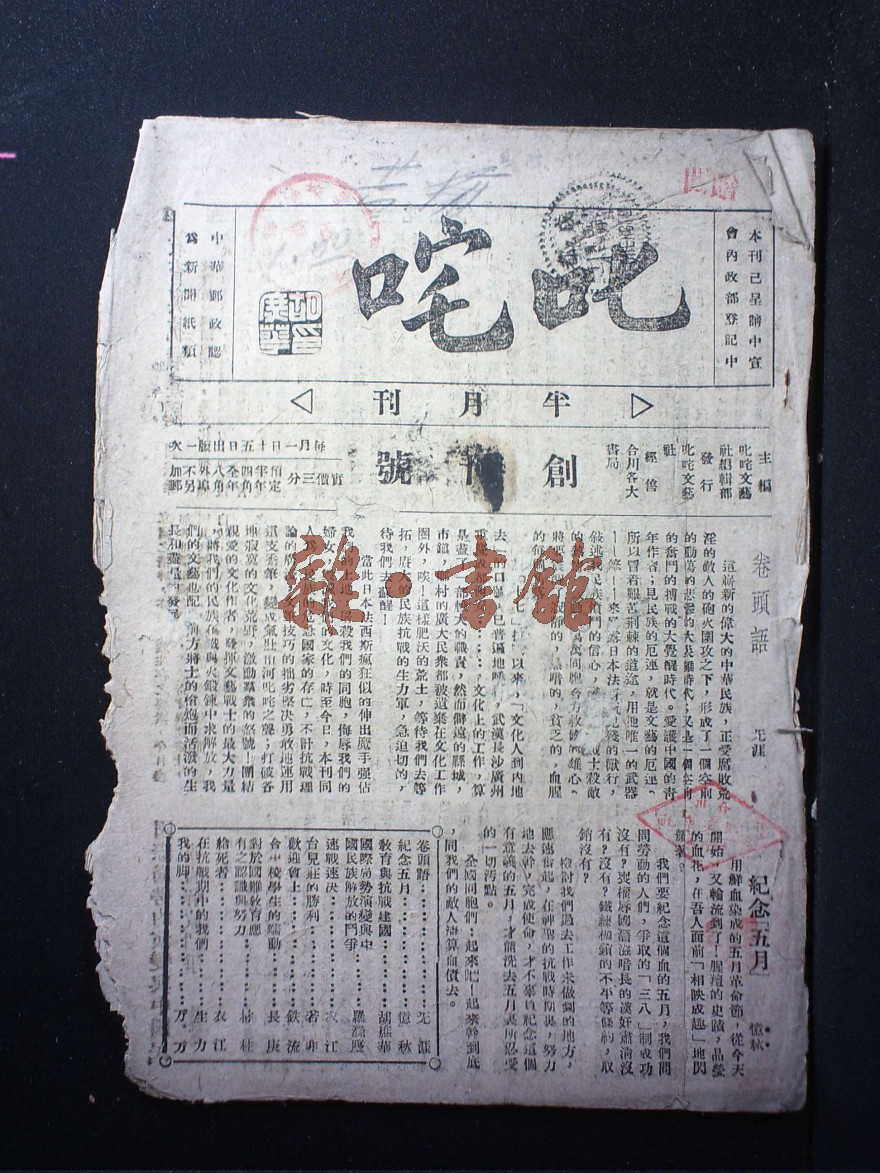 本刊已呈請中宣
會內政部登記中
叱咤
中華郵政認
為新聞紙類
半月刊
主編
叱咤文藝
社編輯部
發行
叱咤文藝
社
經售
合川各大
書局
創刊號
每月一日十五日出版一次
實價三分
預定
半年四角
全年八角
外埠
不另
加郵
卷頭語
无涯
這嶄新的偉大的中華民族，正受腐敗荒
淫的敵人的砲火圍攻之下，形成了一個空前
的動蕩的悲慘的大災難時代；又是一個空前
的奮鬥的搏戰的大覺醒時代。愛護中國的青
年作者；見民族的厄運，就是文藝的厄運。
所以冒着艱苦荆棘的道途，用他唯一的武器
以來，「文化人到內地
去」的口號，已普遍地呼
武漢長沙廣州
重慶成都
文化上的工作，算
是盡了一部較大的職責，然而僻遠的縣城，
市鎮，鄉村的廣大民衆都被遺棄在文化工作
圈外，唉！這樣肥沃的荒土，等待我們去墾
拓，廣大的民族抗戰的生力軍，急迫切的，
待我們去喚醒！
當此日本法西斯瘋狂似的伸出魔手強佔
我們的土地，屠殺我們的同胞，侮辱我們的
婦女
文化，時至今日，本刊同
國家的存亡，不計抗戰理
技巧的拙劣堅決勇敢地運用
這支禿筆，變成氣壯山河叱咤之聲；打破各
地寂寞的文化荒野，激動羣衆的怒號！團結
親愛的文化作者，發揮文藝戰士的最大力量
，將我們的民族在鐵與火鍛鍊中求解放，我
們的文藝也配合前方將士的槍炮而活潑的生
長和蓬勃的發展
紀念「五月」
億秋
用鮮血染成的五月革命節，從今天
開始，又輪流到了！腥羶的史蹟，晶瑩
的血花，在吾人面前「相映成趣」地閃
我們要紀念這個血的五月，我們問
問勞動的人們，爭取的「三八」制成功
沒有？喪權辱國
滋暗長的漢奸肅清沒
有？沒有？鐵鍊枷鎖的不平等條約，取
銷沒有？
檢討我們過去工作未做到的地方，
應速奮起，在神聖的抗戰時期裏，努力
地去幹，完成使命，才不辜負紀念這個
有意義的五月，才能洗去五月裏所忍受
的一切汚點。
全國同胞們！起來吧！起來幹到底
，同我們的敵人清算血債去。
卷頭語……无涯
紀念五月……億秋
教育與抗戰建國……胡燕華
國際局勢演變與中
國民族解放的鬥爭……羅
速戰速決……衣江
台兒莊的勝利……若非
歡迎會上……鉄流
合中校學生的蠕動……長庚
對於國難教育應
有之認識與努力……村桂
給死者……衣江
在抗戰期中的我們……生力
我的脚……万方
雜·書館